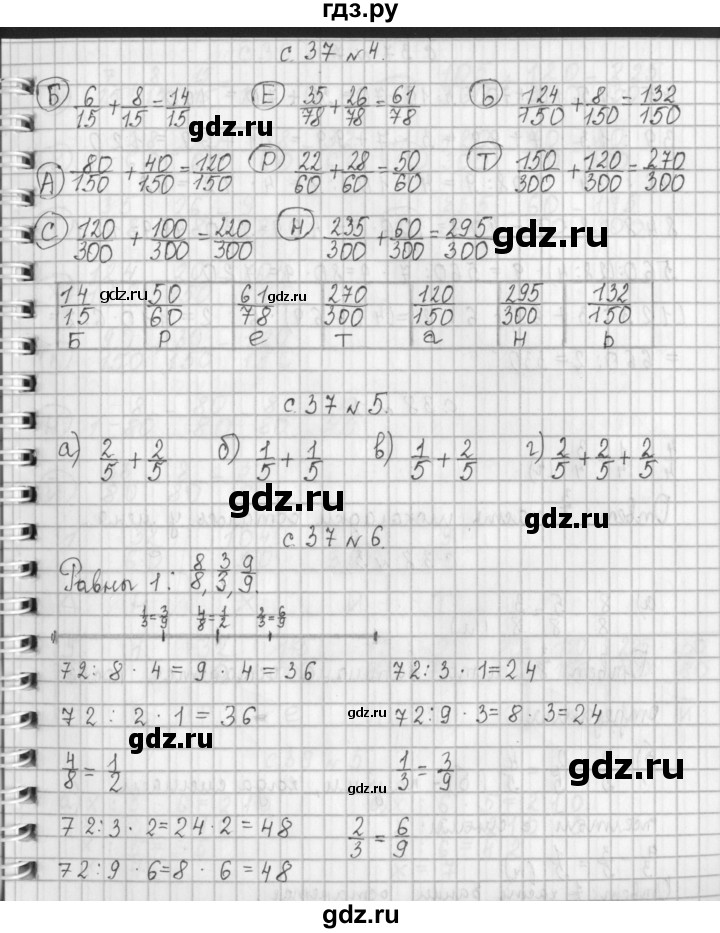 гдз.ру
с. 37 № 4.
Б 6/15 + 8/15 = 14/15 Е 35/78 + 26/78 = 61/78 Ь 124/150 + 8/150 = 132/150
gdz.ru
А 80/150 + 40/150 = 120/150 Р 22/60 + 28/60 = 50/60 Т 150/300 + 120/300 = 270/300
С 120/300 + 100/300 = 220/300 Н 235/300 + 60/300 = 295/300
gdz.ru
14/15 50/60 61/78 270/300 120/150 295/300 132/150
gdz.ru gdz.ru
Б Р е Т а Н Ь
с. 37 № 5.
а) 2/5 + 2/5 б) 1/5 + 1/5 в) 1/5 + 2/5 г) 2/5 + 2/5 + 2/5
gdz.ru gdz.ru
с. 37 № 6.
Равны 1: 8/8, 3/3, 9/9.
1/3 = 3/9 4/8 = 1/2 2/3 = 6/9
72 : 8 · 4 = 9 · 4 = 36 72 : 3 · 1 = 24
72 : 2 · 1 = 36 gdz.ru 72 : 9 · 3 = 8 · 3 = 24
gdz.ru
4/8 = 1/2 1/3 = 3/9 gdz.ru
gdz.ru
72 : 3 · 2 = 24 · 2 = 48 2/3 = 6/9
72 : 9 · 6 = 8 · 6 = 48
gdz.ru